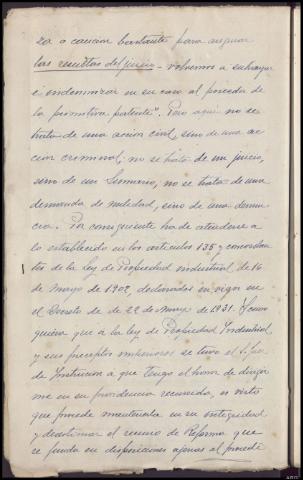 za o caución bastante para asegurar
las resultas del juicio - volvemos a subrayar
e indemnizar en su caso al poseedor de
la primitiva patente". Pero aquí no se
trata de una acción civil, sino de una ac-
ción criminal; no se trata de un juicio,
sino de un Sumario, no se trata de una
demanda de nulidad, sino de una denun-
cia. Por consiguiente ha de atenderse a
lo establecido en los artículos 135 y concordan-
tes de la Ley de Propiedad industrial de 16
de Mayo de 1902, declarados en vigor en
el Decreto de de 22 de Mayo de 1931. Y como
quiera que a la ley de Propiedad Industrial
y sus preceptos anteriores se tuvo el Sr. Juez
de Instrucción a que tengo el honor de dirigir-
me en su providencia recurrida, es visto
que procede mantenerla en su integridad
y desestimar el recurso de Reforma que
se funda en disposiciones ajenas al procedi-